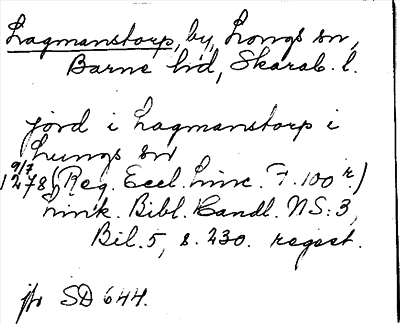 Lagmanstorp, by, Longs sn,
Barne hd, Skarab. l.
jord i Lagmanstorp i
Lungs sn
9/7
1278 (Reg. Eccl. Linc. F. 100 r.)
Link. Bibl. Handl. NS: 3,
Bil. 5, s. 230. regest.
jfr SD 644.